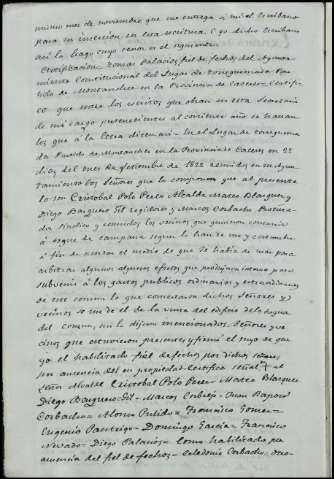 mismo mes de noviembre que me entrega á mi el Escribano
para su insercion en esta escritura. Y yo dicho Escribano
asi lo hago cuyo tenor es el siguiente
Certificacion Tomas Palacios fiel de fechos del Ayunta-
miento Constitucional del Lugar de Torrequemada Par-
tido de Montanchez en la Provincia de Caceres = Certifi-
co que entre los escritos que obran en esta Secretaria
de mi cargo pertenecientes al corriente año se hallan
los que á la letra dicen asi = En el Lugar de Torrequema-
da Partido de Montanchez en la Provincia de Caceres en 22
dias del mes de Setiembre de 1822 reunidos en su Ayun-
tamiento los Señores que lo componen que al presente
lo son Cristobal Polo Perez Alcalde Mateo Blazquez y
Diego Barquero Gil regidores y Marcos Corbacho Procura-
dor Sindico y comunes los vecinos que quisieron concurrir
á toque de campana segun lo han de uso y costumbre
á fin de acordar el medio de que se habia de usar para
arbitrar algunos efectos que produzcan para
subvenir á los gastos publicos ordinarios y extraordinarios
de este comun lo que comentado dichos Señores y
vecinos
del comun, asi lo dijeron mencionados Señores que
con los que estuvieron presentes y firmó el suyo de que
yo el habilitado fiel de fechos por dichos Señores
en ausencia del en propiedad certifico Señal del
Señor Alcalde Cristobal Polo Perez = Mateo Blazquez
Diego Barquero Gil = Marcos Corbacho = Juan
Corbacho = Alonso Pulido = Francisco Gomez =
Eugenio Pantrigo = Domingo Garcia = Francisco
Nevado = Diego Palacios = Como habilitado por
ausencia del fiel de fechos = Celedonio Corbacho